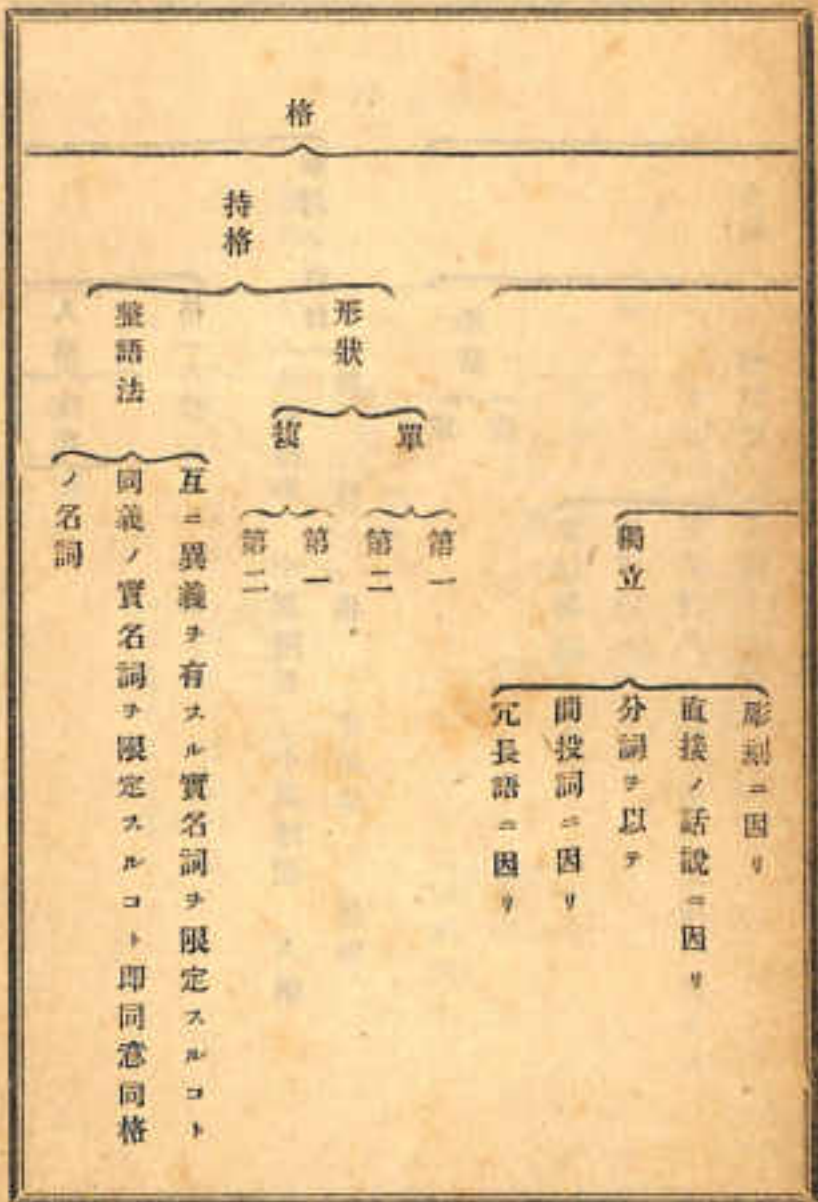 格
獨立
彫刻ニ因リ
直接ノ話說ニ因リ
分詞ヲ以テ
間投詞ニ因リ
冗長語ニ因リ
持格
形狀
單
第一
第二
複
第一
第二
整語法
互ニ異義ヲ有スル實名詞ヲ限定スルコト
同義ノ實名詞ヲ限定スルコト即同意同格
ノ名詞